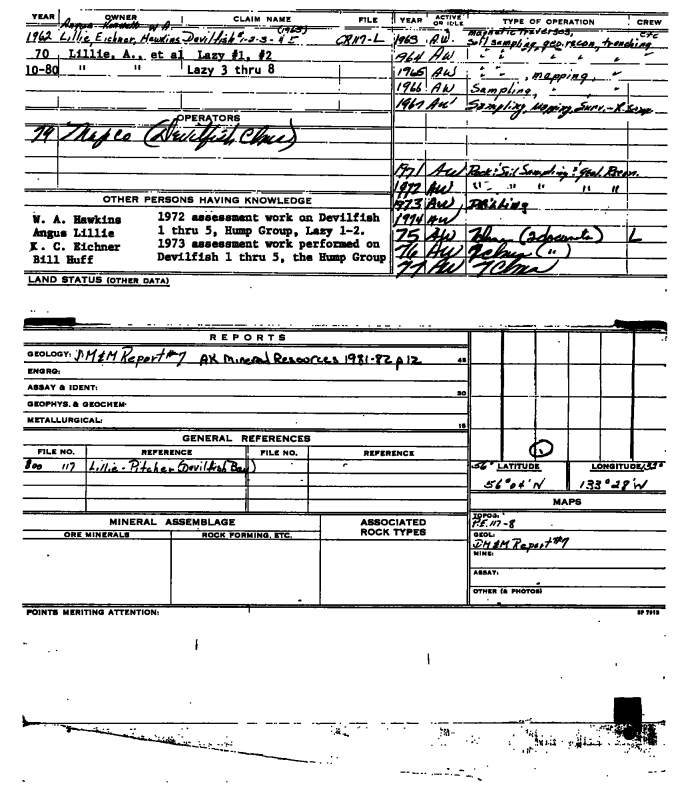 YEAR OWNER CLAIM NAME FILE YEAR ACTIVE OR IDLE TYPE OF OPERATION CREW
Angus Kenneth W A (1963) magnetic traverses, etc
1962 Lillie, Eichner, Hawkins Devilfish #1-2-3-4 5 CR117-L 1963 AW. Soil sampling, geo. recon, trenching
70 Lillie, A., et al Lazy #1, #2 1964 AW " " " "
10-80 " " Lazy 3 thru 8 1965 AW " , mapping, "
1966 AW Sampling, " "
1967 AW Sampling, Mapping, Surv.
OPERATORS
79 Mapco (Devilfish Clms)
1971 AW Rock & Soil Sampling & geol. Recon.
1972 AW " " " " "
OTHER PERSONS HAVING KNOWLEDGE 1973 AW Drilling
W. A. Hawkins 1972 assessment work on Devilfish 1974 AW
Angus Lillie 1 thru 5, Hump Group, Lazy 1-2. 75 AW (2 documents) L
K. C. Eichner 1973 assessment work performed on 76 AW 7 clms (")
Bill Huff Devilfish 1 thru 5, the Hump Group 77 AW 7 Clms
LAND STATUS (OTHER DATA)
REPORTS
GEOLOGY: DM&M Report #7 AK Mineral Resources 1981-82 p12 45
ENGRG:
ASSAY & IDENT: 30
GEOPHYS. & GEOCHEM.
METALLURGICAL: 15
GENERAL REFERENCES
FILE NO. REFERENCE FILE NO. REFERENCE
800 117 Lillie-Pitcher (Devilfish Bay)
1
56° LATITUDE LONGITUDE 133°
56°04'N 133°28'W
MAPS
MINERAL ASSEMBLAGE ASSOCIATED ROCK TYPES
ORE MINERALS ROCK FORMING, ETC.
TOPOG:
P.E. 117-8
GEOL:
DM&M Report #7
MINE:
ASSAY:
OTHER (& PHOTOS)
POINTS MERITING ATTENTION: